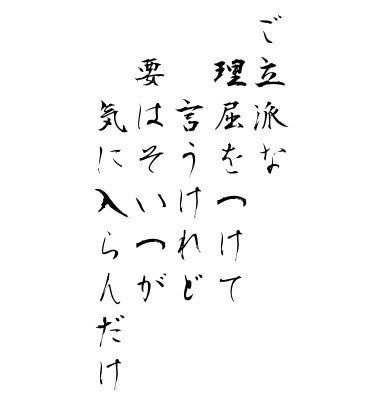 ご立派な
理屈をつけて
言うけれど
要はそいつが
気に入らんだけ